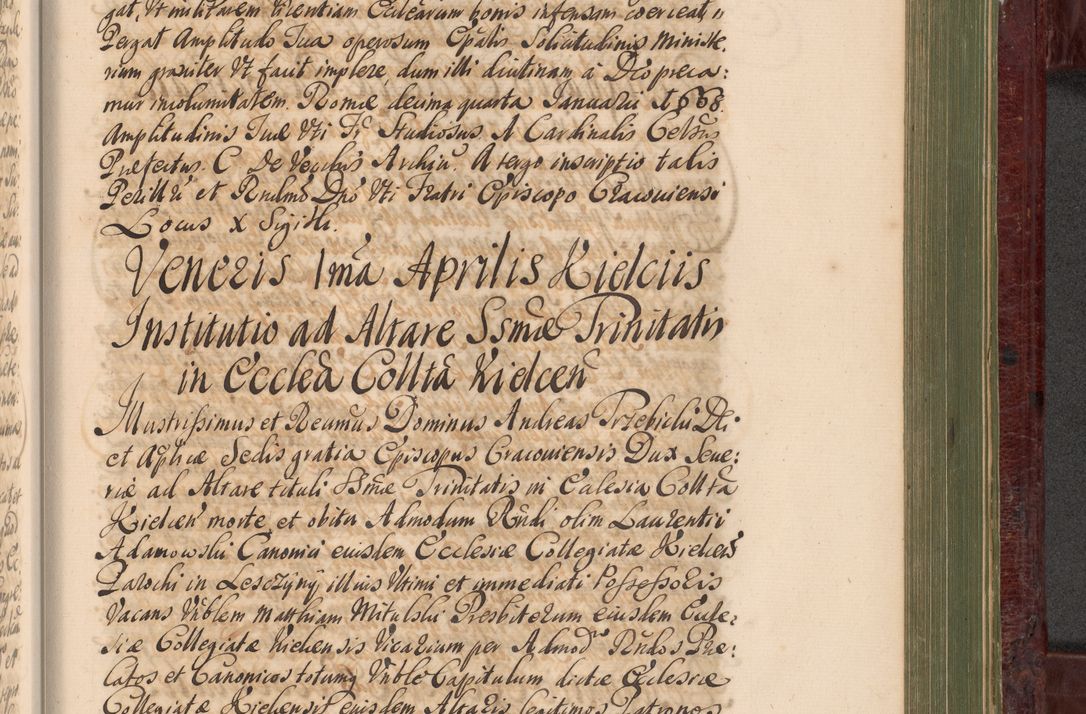 gat, Ut militarem licentiam Ecclearum bonis infensam coerceat,
Pergat Amplitudo Tua operosum Epalis Solicitudinis Ministe,
rium graviter Ut facit implere, dum illi diutinam à Deo preca:
mur incolumitatem. Romæ decima quarta Januarii 1668
Amplitudinis Tuæ Uti Fr Studiosus A Cardinalis Celsus
Præfectus. C De Vecchis Archiu. A tergo inscriptio talis
Perillri et Rndmo Dno Uti Fratri Episcopo Cracouiensi
Locus X Sigilli.
Veneris 1ma Aprilis Kielciis
Institutio ad Altare SSmæ Trinitatis
in Ecclea Collta Kielcen
Illustrissimus et Reamus Dominus Andreas Trzebicki Dei
et Aplicæ Sedis gratia Episcopus Cracouiensis Dux Seue:
riæ ad Altare tituli SSmæ Trinitatis in Eclesia Collta
Kielcen morte et obitu Admodum Rndi olim Laurentii
Adamowski Canonici eiusdem Ecclesiæ Collegiatæ Kielcens
Parochi in Lesczyny illius Ultimi et immediati Possessoris
Vacans Vnblem Matthiam Mitulski Presbiterum eiusdem Eccle:
siæ Collegiatæ Kielcensis Vicarium per Admod Rndos Præ:
latos et Canonicos totumq Vnble Capitulum dictæ Eclesiæ
Collegiatæ Kielcensis eiusdem Altaris legitimos Patronos